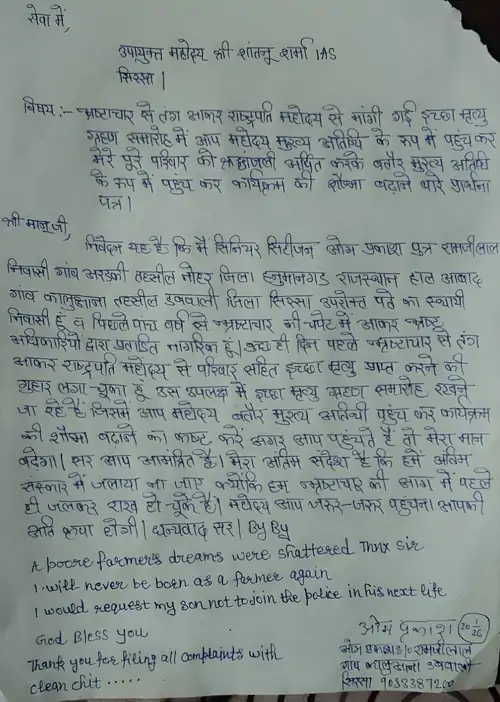 सेवा में,
उपायुक्त महोदय श्री शांतनु शर्मा IAS
सिरसा |
विषय :- भ्रष्टाचार से तंग आकर राष्ट्रपति महोदय से मांगी गई इच्छा मृत्यु
ग्रहण समारोह में आप महोदय मुख्य अतिथि के रूप में पहुंच कर
मेरे पूरे परिवार को श्रद्धांजली अर्पित करके बतौर मुख्य अतिथि
के रूप में पहुंच कर कार्यक्रम की शोभा बढ़ाने बारे प्रार्थना
पत्र |
श्री मान् जी,
निवेदन यह है कि मैं सिनियर सिटीजन ओम प्रकाश पुत्र रामजीलाल
निवासी गांव अरड़की तहसील नोहर जिला हनुमानगढ़ राजस्थान हाल आबाद
गांव कालुआना तहसील डबवाली जिला सिरसा उपरोक्त पते का स्थायी
निवासी हूं व पिछले पांच वर्ष से भ्रष्टाचार की चपेट में आकर भ्रष्ट
अधिकारियों द्वारा प्रताड़ित नागरिक हूं | कुछ ही दिन पहले भ्रष्टाचार से तंग
आकर राष्ट्रपति महोदय से परिवार सहित इच्छा मृत्यु प्राप्त करने की
गुहार लगा चूका हूं उस उपलक्ष में इच्छा मृत्यु ग्रहण समारोह रखने
जा रहे हैं जिसमें आप महोदय बतौर मुख्य अतिथी पहुंच कर कार्यक्रम
की शोभा बढाने का कष्ट करें अगर आप पहुंचते हैं तो मेरा मान
बढेगा | सर आप आमंत्रित है | मेरा अंतिम संदेश है कि हमें अंतिम
संस्कार में जलाया ना जाए क्योंकि हम भ्रष्टाचार की आग में पहले
ही जलकर राख हो चूके हैं | महोदय आप जरूर-जरूर पहुंचना आपकी
अति कृपा होगी | धन्यवाद सर | By By
A poore farmer's dreams were shattered Thnx Sir
I will never be born as a farmer again
I would request my son not to join the police in his next life
God Bless you
Thank you for filing all complaints with
clean chit .....
ओम प्रकाश 20/1/26
ओम प्रकाश S/o रामजीलाल
गांव कालुआना डबवाली
सिरसा